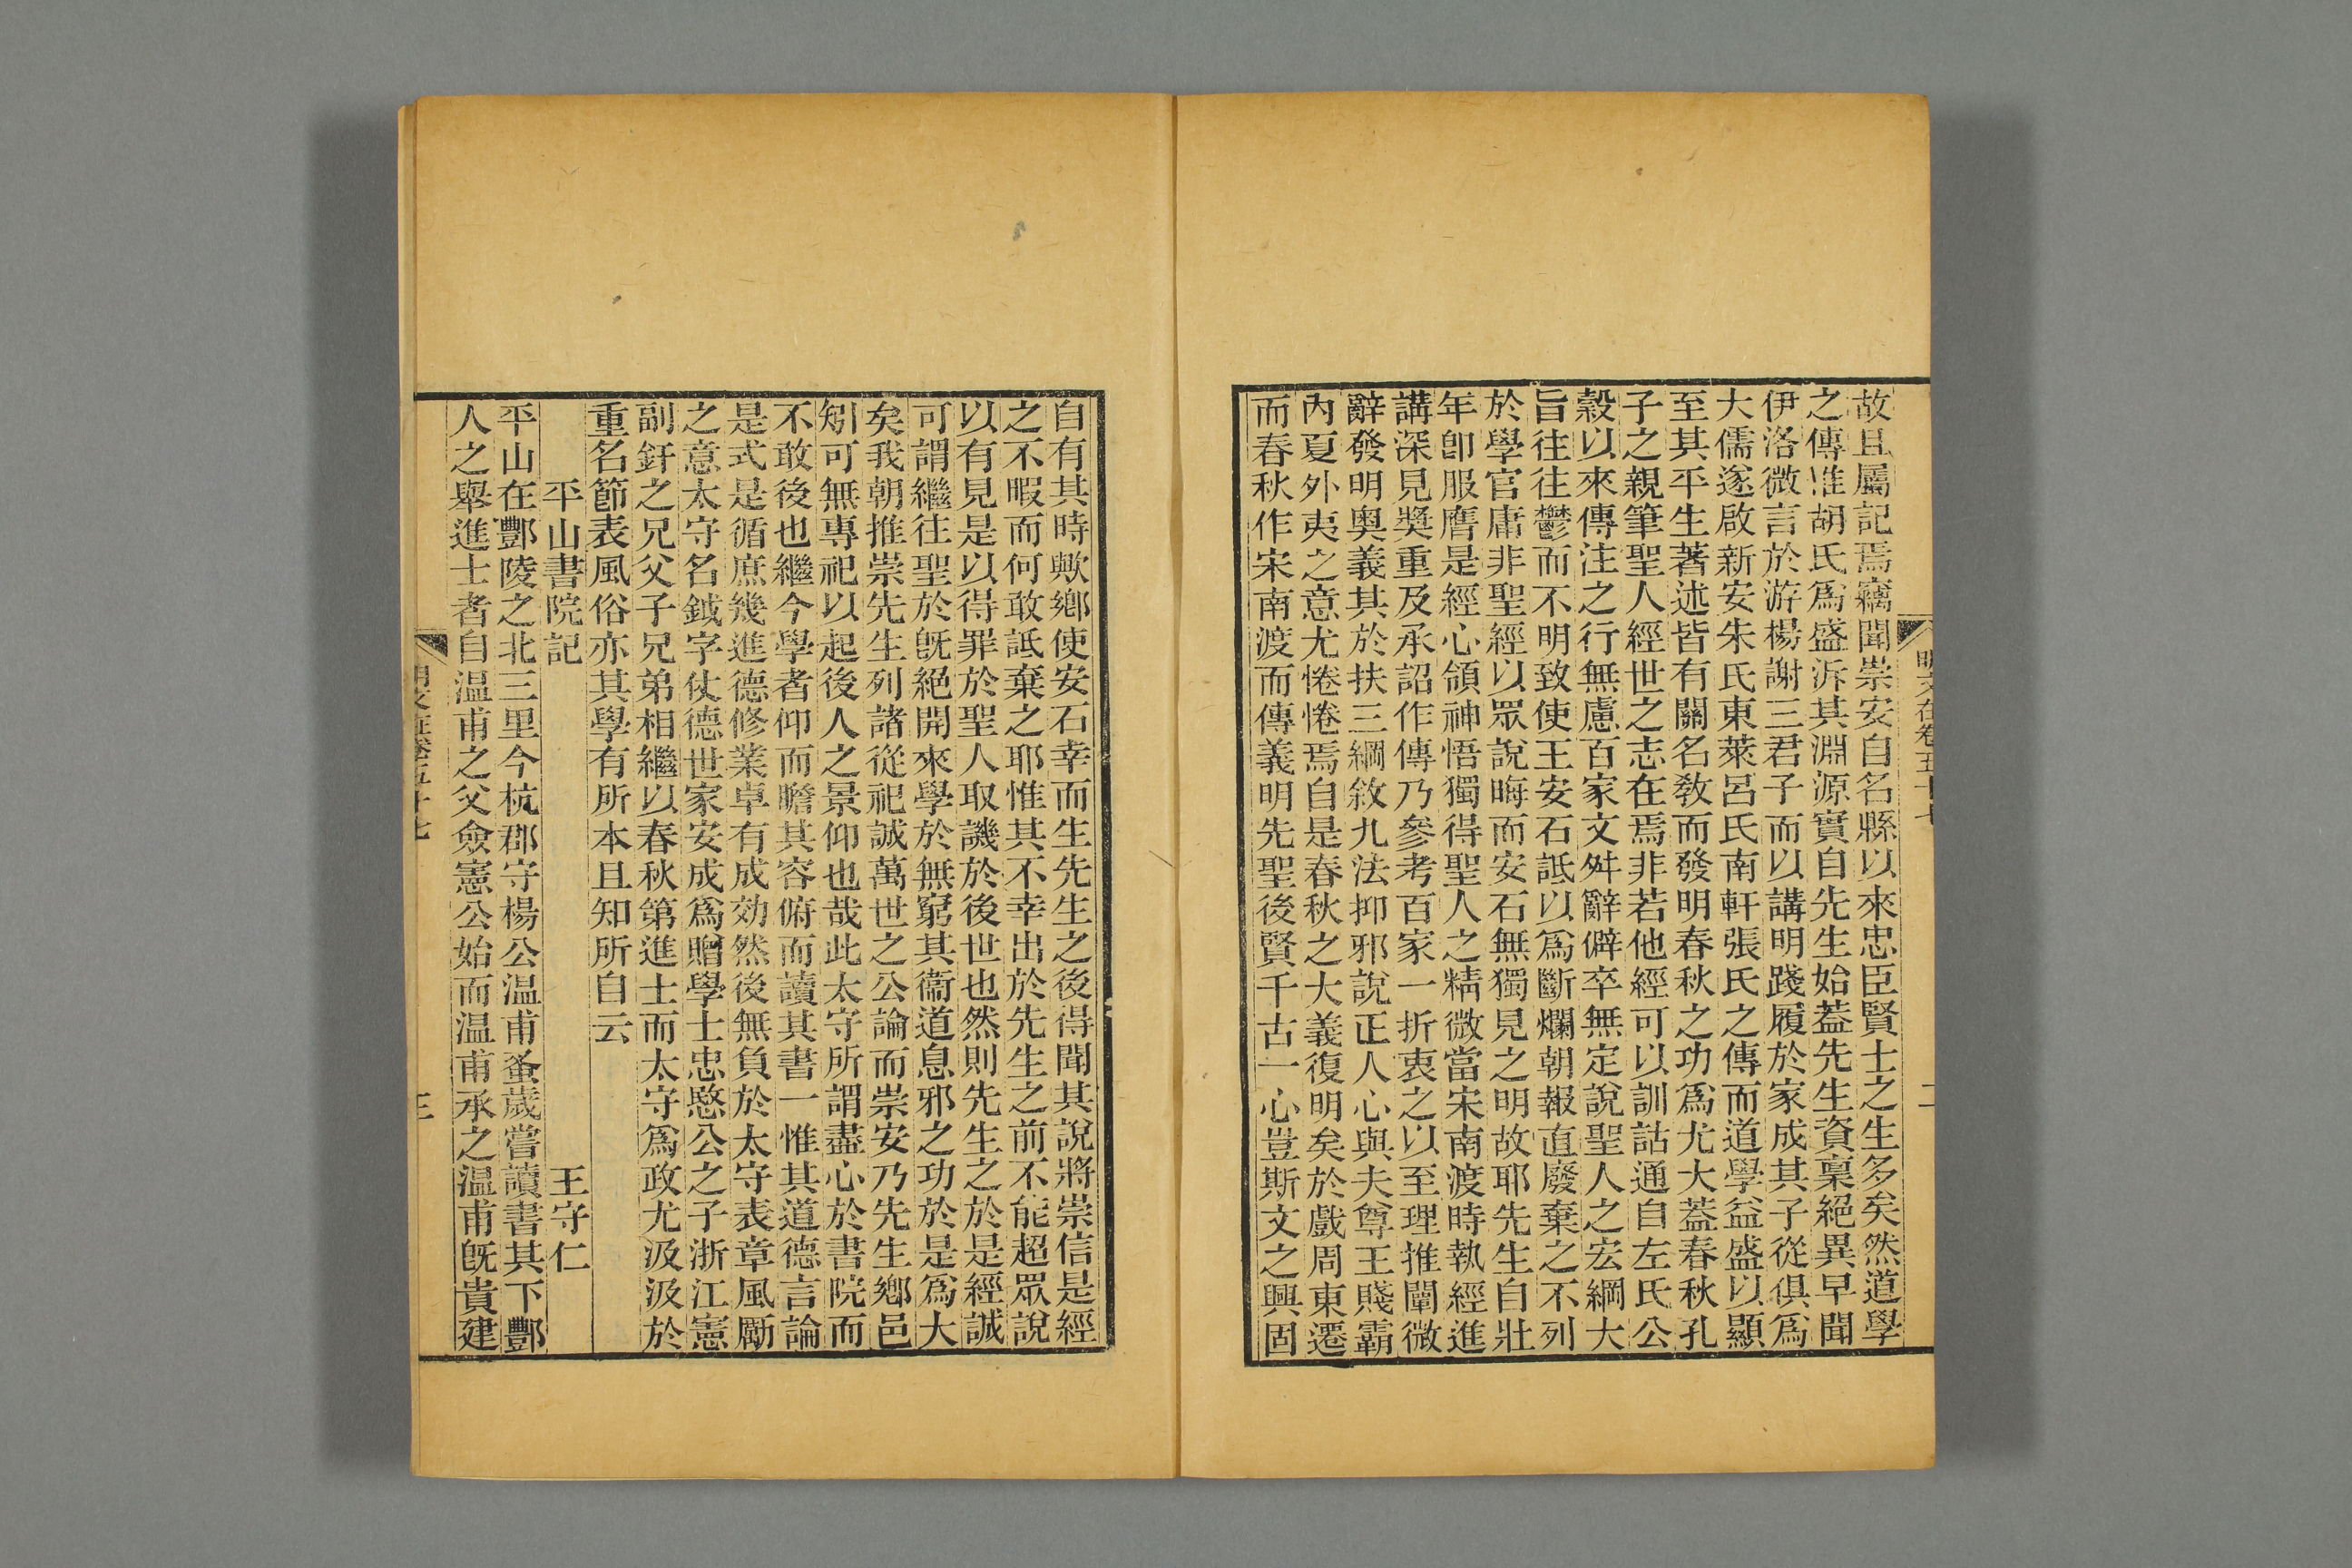 故且屬記焉竊聞崇安自名縣以來忠臣賢士之生多矣然道學
之傳惟胡氏爲盛泝其淵源實自先生始蓋先生資稟絕異早聞
伊洛微言於游楊謝三君子而以講明踐履於家成其子從俱爲
大儒遂啟新安朱氏東萊呂氏南軒張氏之傳而道學益盛以顯
至其平生著述皆有關名教而發明春秋之功爲尤大蓋春秋孔
子之親筆聖人經世之志在焉非若他經可以訓詁通自左氏公
穀以來傳注之行無慮百家文舛辭僻卒無定說聖人之宏綱大
旨往往鬱而不明致使王安石詆以爲斷爛朝報直廢棄之不列
於學官庸非聖經以眾說晦而安石無獨見之明故耶先生自壯
年卽服膺是經心領神悟獨得聖人之精微當宋南渡時執經進
講深見獎重及承詔作傳乃參考百家一折衷之以至理推闡微
辭發明奧義其於扶三綱敘九法抑邪說正人心與夫尊王賤霸
內夏外夷之意尤惓惓焉自是春秋之大義復明矣於戲周東遷
而春秋作宋南渡而傳義明先聖後賢千古一心豈斯文之興固
明文在卷五十七
二
自有其時歟鄉使安石幸而生先生之後得聞其說將崇信是經
之不暇而何敢詆棄之耶惟其不幸出於先生之前不能超眾說
以有見是以得罪於聖人取譏於後世也然則先生之於是經誠
可謂繼往聖於旣絕開來學於無窮其衞道息邪之功於是爲大
矣我朝推崇先生列諸從祀誠萬世之公論而崇安乃先生鄉邑
矧可無專祀以起後人之景仰也哉此太守所謂盡心於書院而
不敢後也繼今學者仰而瞻其容俯而讀其書一惟其道德言論
是式是循庶幾進德修業卓有成効然後無負於太守表章風勵
之意太守名鉞字仗德世家安成爲贈學士忠愍公之子浙江憲
副釬之兄父子兄弟相繼以春秋第進士而太守爲政尤汲汲於
重名節表風俗亦其學有所本且知所自云
平山書院記　王守仁
平山在酆陵之北三里今杭郡守楊公温甫蚤歲嘗讀書其下酆
人之舉進士者自温甫之父僉憲公始而温甫承之温甫旣貴建
明文在卷五十七
三